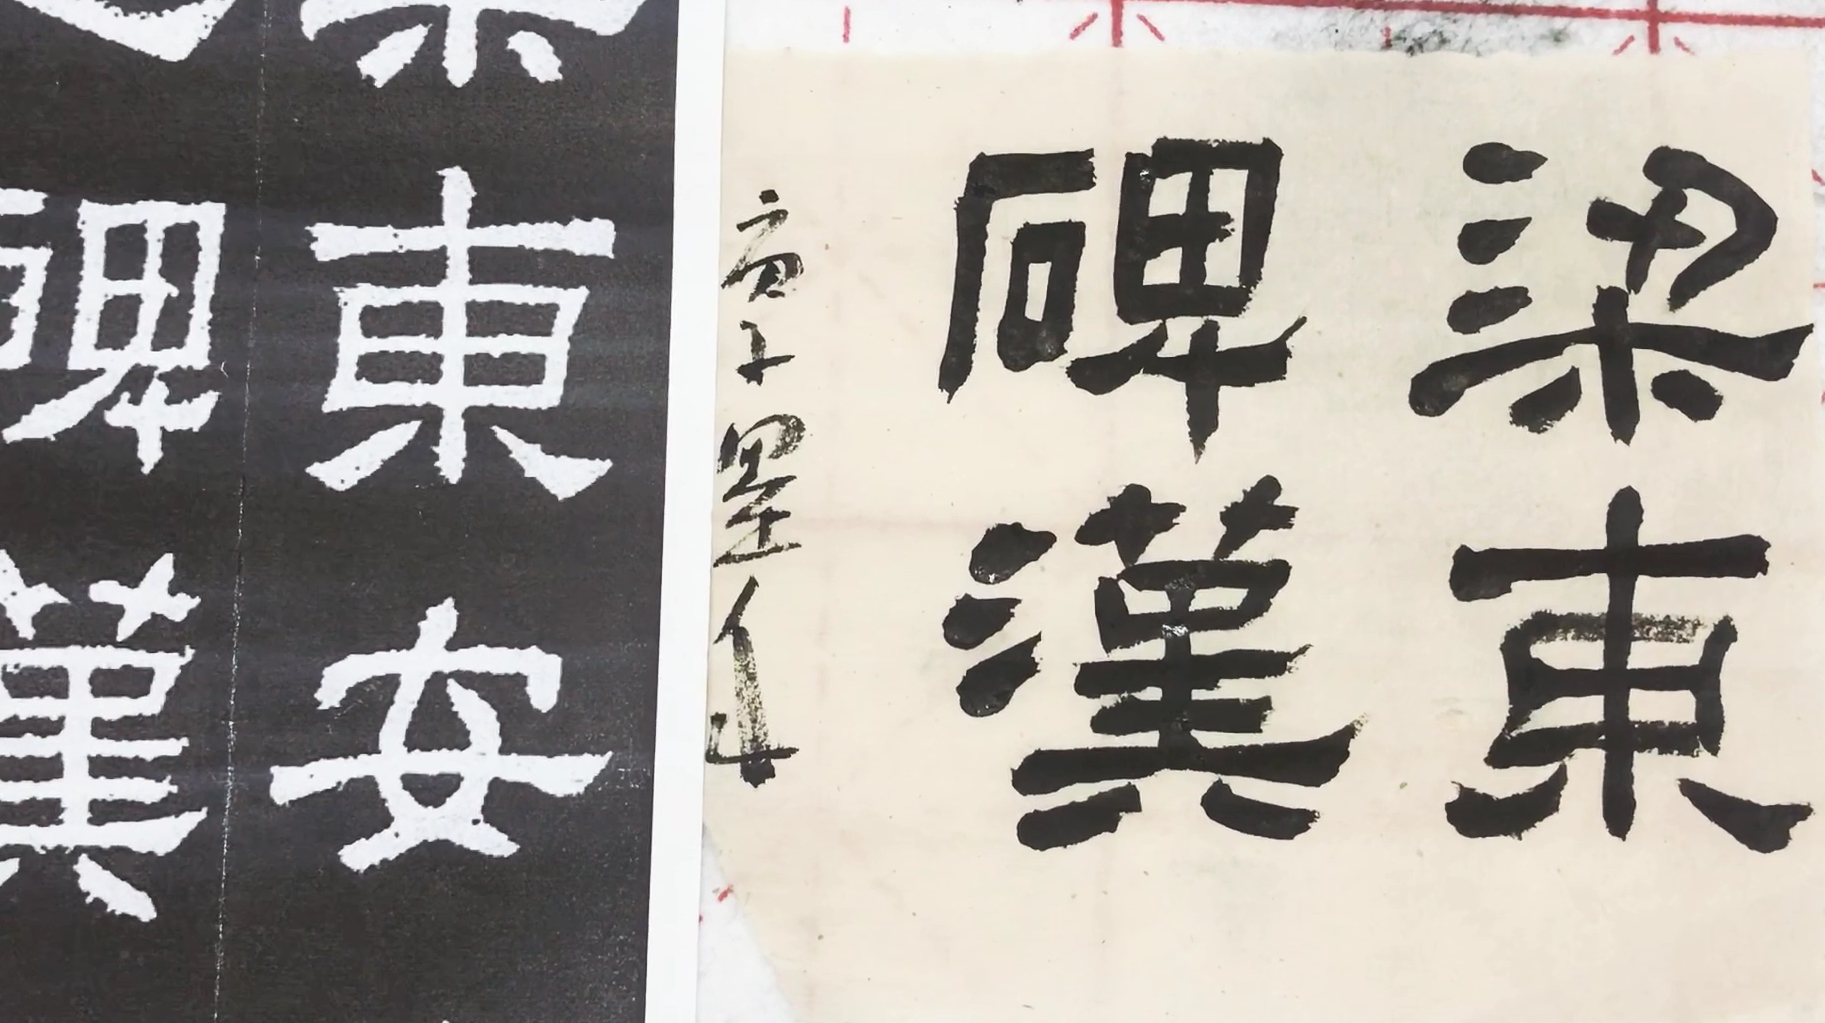 東安
碑漢
梁東
碑漢